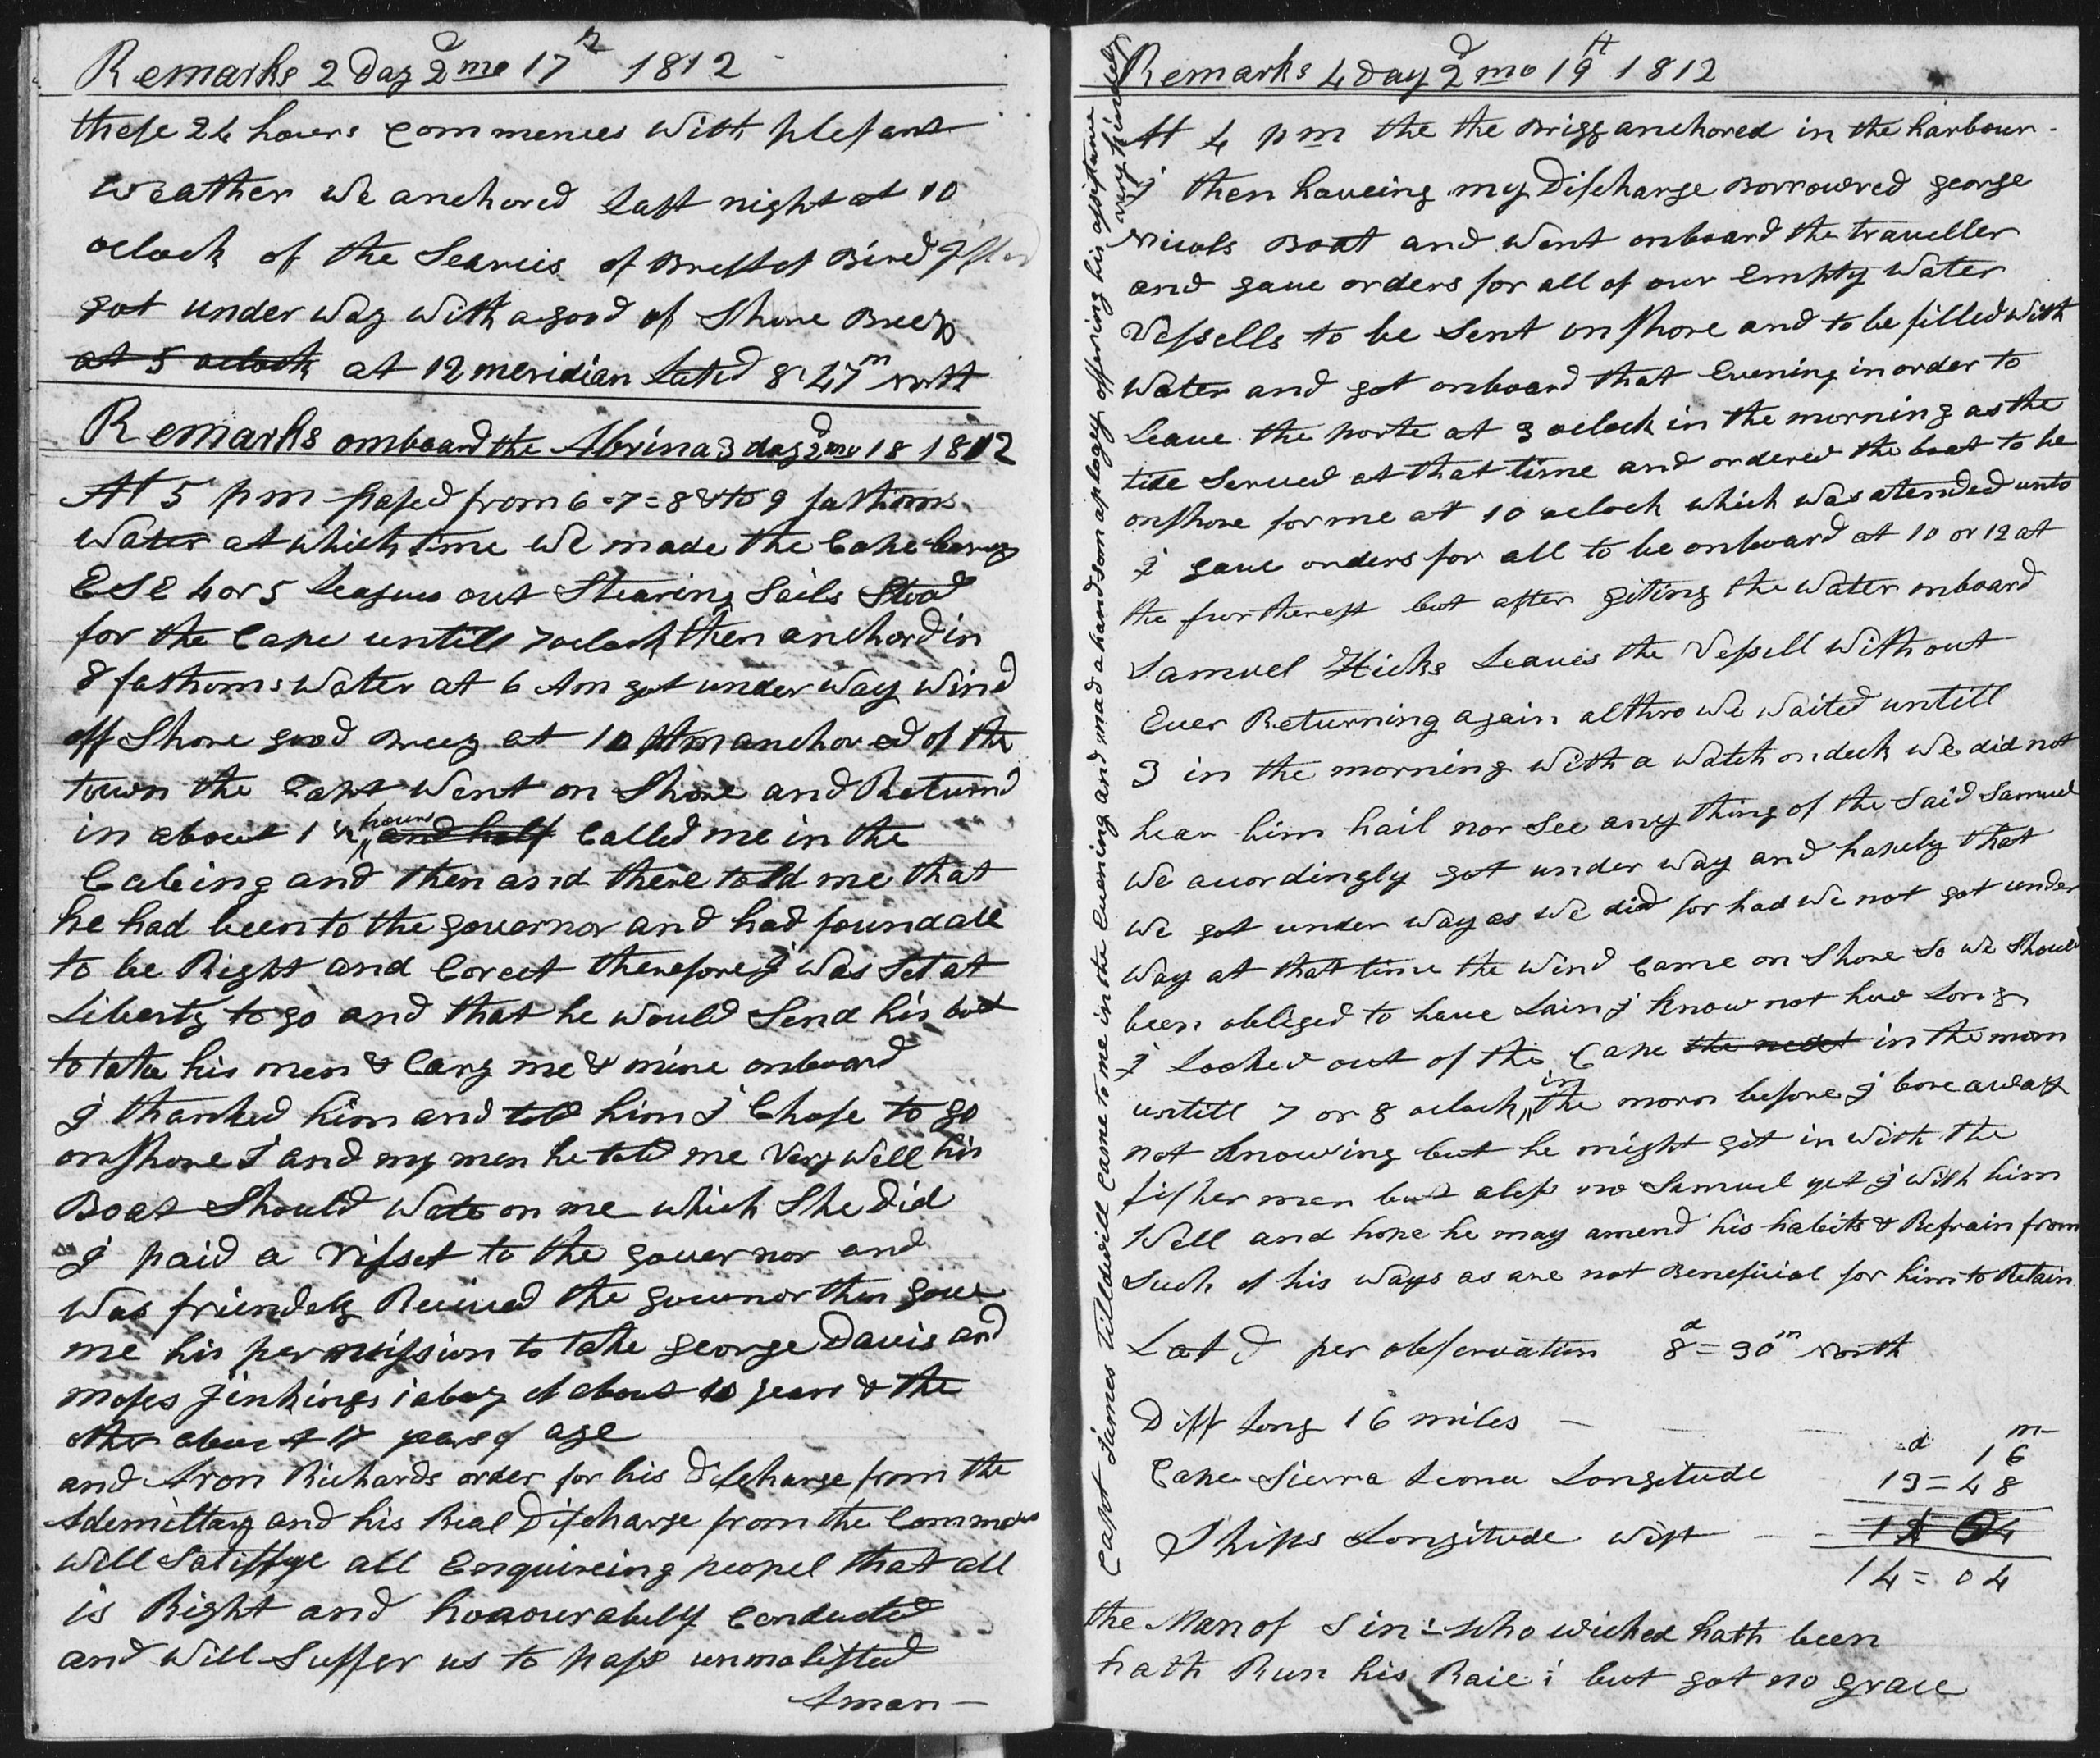 Remarks 2 Day 2d mo 17th 1812
these 24 hours Commences With plesant
Weather We anchored last night at 10
oclock of the Scarcis of
got under way With a good of Shore Breez
at 5 oclock at 12 meridian Latd 8d 47m North
Remarks onboard the Abrina 3 day 2d mo 18 1812
At 5 pm Pased from 6=7=8 & to 9 fathoms
Water at which time We made the Cape baring
ESE 4 or 5 Leagues out Stearing Sails Stood
for the Cape untill 7 oclock then anchord in
8 fathoms Water at 6 Am got under Way Wind
off Shore good Breez at 10 Am anchored of the
town the Capt Went on Shore and Returnd
in about 1 & hours and half Called me in the
Cabeing and then and there told me that
he had been to the governor and had found all
to be Right and Corect therefore I was Set at
Liberty to go and that he would Send his boat
to take his men & Cary me & mine onboard
I thanked him and told him I Chose to go
onshore I and my men he told me Very Well his
Boat Should Wate on me which She Did
I paid a Visset to the governor and
Was friendely Recived the governor then gave
me his permission to take george Davis and
moses Jinkings 1 aboy of about 10 years & the
other about 17 years of age
and Aron Richards order for his Discharge from the
Ademirltary and his Real Discharge from the Commodore
Will Satisffye all Enquireing peopel that all
is Right and honourabely Conducted
and Will Suffer us to pass unmolisted
Aman—
Remarks 4 Day 2d mo 19th 1812
At 4 pm the the Brigg anchored in the harbour
I then haveing my Discharge Borrowred george
Nicols Boat and Went onboard the traveller
and gave orders for all of our Empty Water
Vessells to be Sent onshore and to be filled with
Water and got onboard that Evening in order to
Leave the porte at 3 oclock in the morning as the
tide Served at that time and ordered the boat to be
onshore for me at 10 oclock which was atended unto
I gave orders for all to be onboard at 10 or 12 at
the furtherest but after giting the Water onboard
Samuel Hicks Leaves the Vessell Without
Ever Returning again althro We Waited untill
3 in the morning With a Watch on deck We did not
hear him hail nor See any thing of the Said Samuel
We acordingly got under way and hapely that
We got under Way as We did for had We not got under
Way at that time the Wind Came on Shore So we Should
been obliged to have Lain I know not how Long
I Looked out of the Cape the next in the morn
untill 7 or 8 oclock in the morn before I bore away
not knowing but he might git in With the
fisher men but alass no Samuel yet I Wish him
Well and hope he may amend his habits & Refrain from
Such of his Ways as are not Beneficial for him to Retain
Latd per observation 8d=30m North
Diff Long 16 miles — d m 16
Cape Sierra Leona Longitude 13=48
Ships Longitude Wist — 14 04
14=04
the Man of Sin: Who wicked hath been
hath Run his Raic: but got no grace
Capt James Tilldwill Came to me in the Evening and mad a handsom aplogey offering his assistance
very kindely